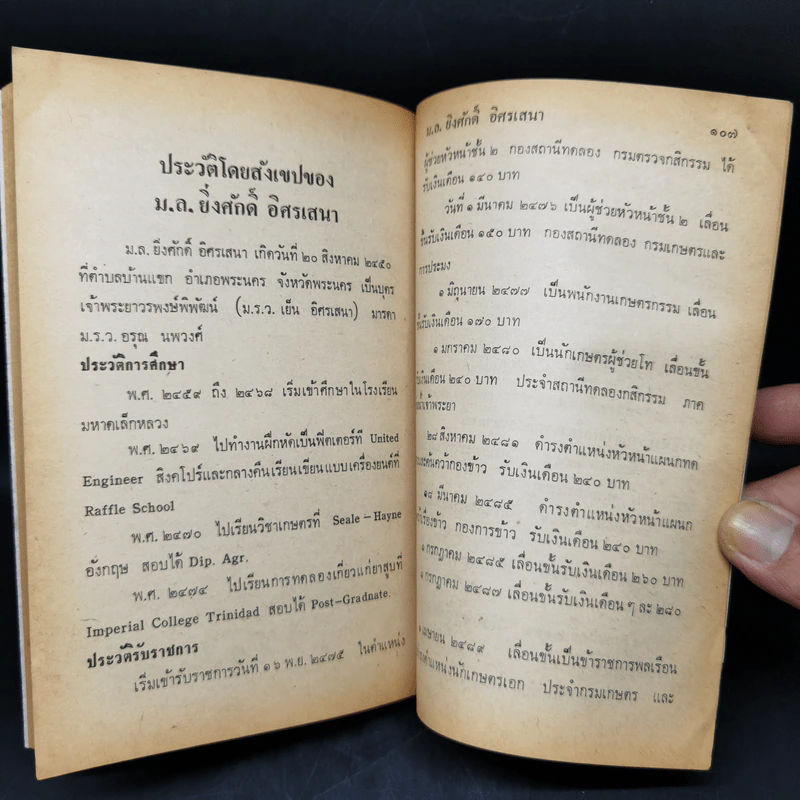 ประวัติโดยสังเขปของ
ม.ล. ยิ่งศักดิ์ อิศรเสนา
ม.ล. ยิ่งศักดิ์ อิศรเสนา เกิดวันที่ ๒๐ สิงหาคม ๒๔๕๐
ที่ตำบลบ้านแขก อำเภอพระนคร จังหวัดพระนคร เป็นบุตร
เจ้าพระยาวรพงษ์พิพัฒน์ (ม.ร.ว. เย็น อิศรเสนา) มารดา
ม.ร.ว. อรุณ นพวงศ์
ประวัติการศึกษา
พ.ศ. ๒๔๕๙ ถึง ๒๔๖๘ เริ่มเข้าศึกษาในโรงเรียน
มหาดเล็กหลวง
พ.ศ. ๒๔๖๙ ไปทำงานฝึกหัดเป็นฟิตเตอร์ที่ United
Engineer สิงคโปร์และกลางคืนเรียนเขียนแบบเครื่องยนต์ที่
Raffle School
พ.ศ. ๒๔๗๐ ไปเรียนวิชาเกษตรที่ Seale-Hayne
อังกฤษ สอบได้ Dip. Agr.
พ.ศ. ๒๔๗๔ ไปเรียนการทดลองเกี่ยวแก่ยาสูบที่
Imperial College Trinidad สอบได้ Post-Gradnate.
ประวัติรับราชการ
เริ่มเข้ารับราชการวันที่ ๑๖ พ.ย. ๒๔๗๕ ในตำแหน่ง
ม.ล. ยิ่งศักดิ์ อิศรเสนา ๑๐๗
ผู้ช่วยหัวหน้าชั้น ๒ กองสถานีทดลอง กรมตรวจกสิกรรม ได้
รับเงินเดือน ๑๔๐ บาท
วันที่ ๑ มีนาคม ๒๔๗๖ เป็นผู้ช่วยหัวหน้าชั้น ๒ เลื่อน
ขั้นรับเงินเดือน ๑๕๐ บาท กองสถานีทดลอง กรมเกษตรและ
การประมง
๑ มิถุนายน ๒๔๗๗ เป็นพนักงานเกษตรกรรม เลื่อน
ขั้นรับเงินเดือน ๑๗๐ บาท
๑ มกราคม ๒๔๘๐ เป็นนักเกษตรผู้ช่วยโท เลื่อนขั้น
รับเงินเดือน ๒๔๐ บาท ประจำสถานีทดลองกสิกรรม ภาค
เจ้าพระยา
๒๘ สิงหาคม ๒๔๘๑ ดำรงตำแหน่งหัวหน้าแผนกทด
และค้นคว้ากองข้าว รับเงินเดือน ๒๔๐ บาท
๑๘ มีนาคม ๒๔๘๕ ดำรงตำแหน่งหัวหน้าแผนก
เรื่องข้าว กองการข้าว รับเงินเดือน ๒๔๐ บาท
๑ กรกฎาคม ๒๔๘๕ เลื่อนขั้นรับเงินเดือน ๒๖๐ บาท
๑ กรกฎาคม ๒๔๘๗ เลื่อนขั้นรับเงินเดือน ๆ ละ ๒๘๐
เมษายน ๒๔๘๙ เลื่อนขั้นเป็นข้าราชการพลเรือน
ตำแหน่งนักเกษตรเอก ประจำกรมเกษตร และ